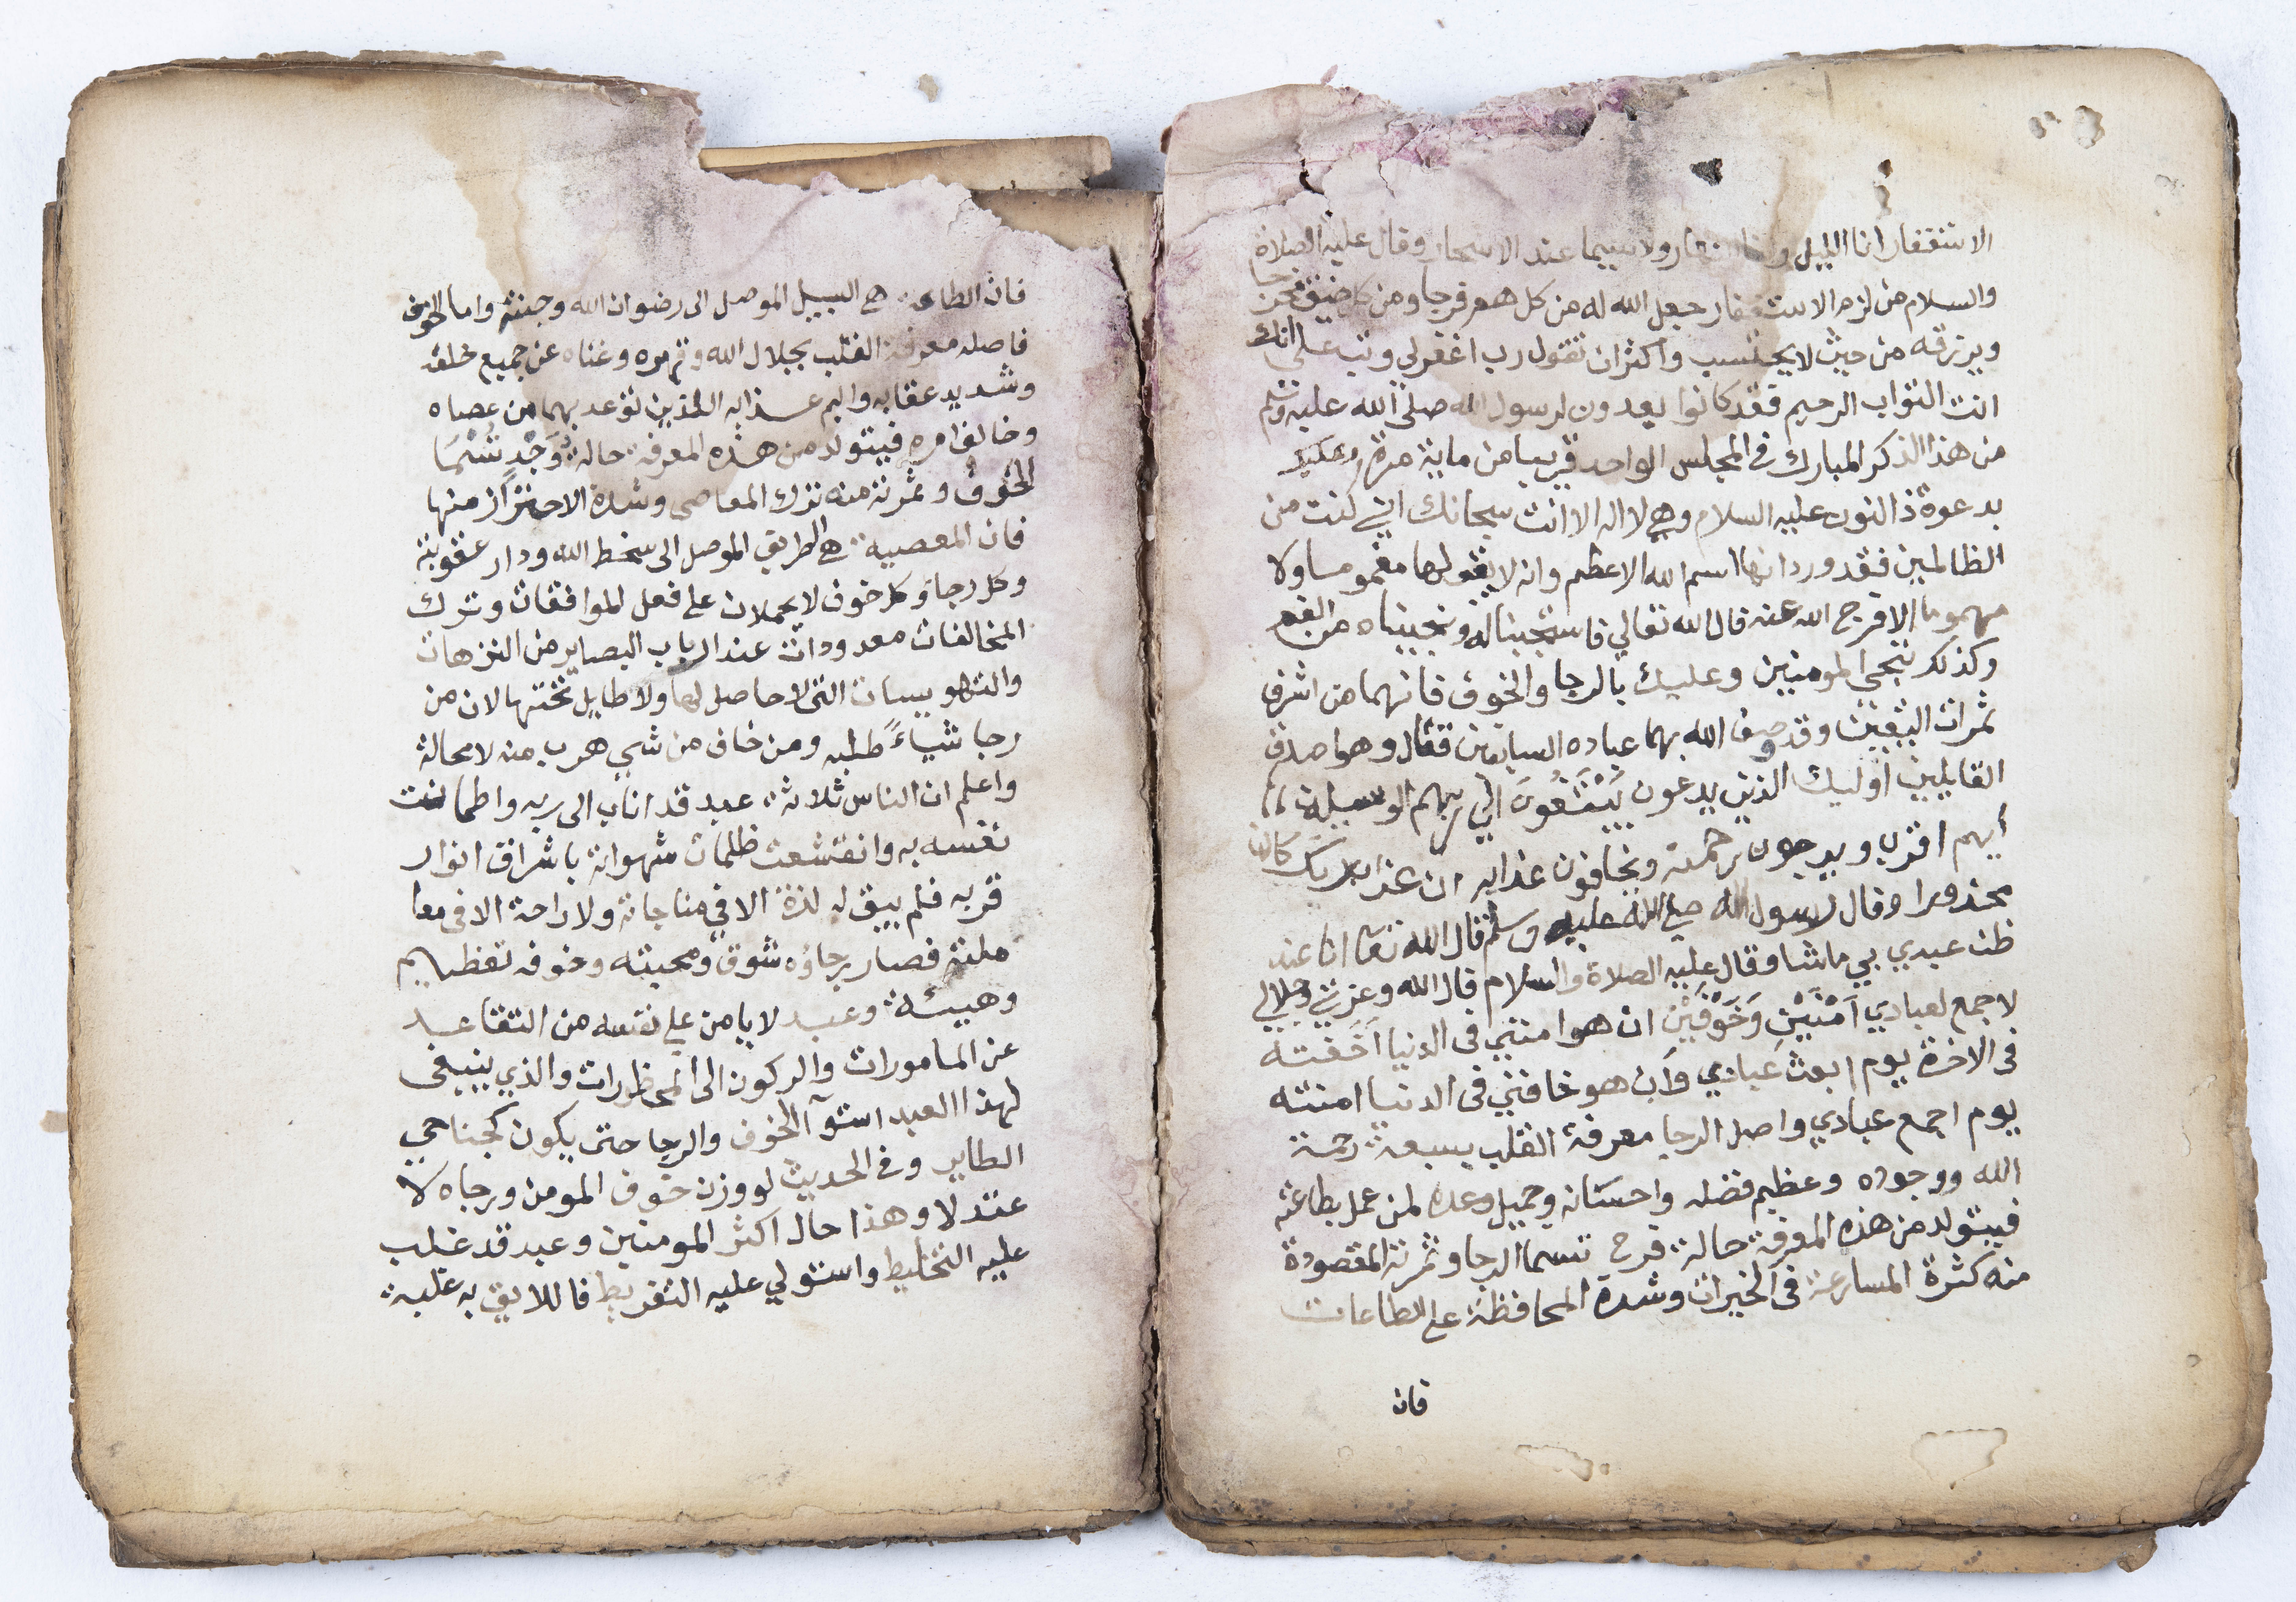 الاستغفار انا الليل والنهار ولاسيما عند الاسحار وقال عليه الصلاة
والسلام من لزم الاستغفار جعل الله له من كل هم فرجا ومن كل ضيق مخرجا
ويرزقه من حيث لا يحتسب واكثر ان تقول رب اغفر لي وتب علي انك
انت التواب الرحيم فقد كانوا يعدون لرسول الله صلى الله عليه وسلم
من هذا الذكر المبارك في المجلس الواحد قريبا من ماية مرة وعليك
بدعوة ذا النون عليه السلام وهي لا اله الا انت سبحانك اني كنت من
الظالمين فقد ورد انها اسم الله الاعظم وانه لا يقولها مغموما ولا
مهموما الا فرج الله عنه قال الله تعالي فاستجبنا له ونجيناه من الغم
وكذلك ننجي المومنين وعليك بالرجا والخوف فانهما من اشرف
ثمرات اليقين وقد وصف الله بهما عباده السابقين فقال وهو اصدق
القايلين اوليك الذين يدعون يَبْتَغُونَ الي ربهم الوسيلة
ايهم اقرب ويرجون رحمته ويخافون عذابه ان عذاب ربك كان
محذورا وقال رسول الله صلي الله عليه وسلم قال الله تعا انا عند
ظن عبدي بي ما شا وقال عليه الصلاة والسلام قال الله وعزتي وجلالي
لا جمع لعبادي اَمْنَيْنِ وَخَوْفَيْنِ ان هو امنني في الدنيا اَخَفته
في الاخرة يوم ابعث عبادي وان هو خافني في الدنيا امنته
يوم اجمع عبادي واصل الرجا معرفة القلب بسعة رحمة
الله ووجوده وعظيم فضله واحسانه وجميل وعده لمن عمل بطاعته
فيتولد من هذه المعرفة حالة فرح تسما الرجا وثمرته المقصودة
منه كثرة المسارعة في الخيرات وشدة المحافظة علي الطاعات
فان
فان الطاعة هي السبيل الموصل الى رضوان الله وجنته واما الخوف
فاصله معرفة القلب بجلال الله وقهره وغناه عن جميع خلقه
وشديد عقابه واليم عذابه الذين توعد بهما من عصاه
وخالف امره فيتولد من هذه المعرفة حالة وَجْدٍ تُسَمَّا
الخوف وثمرته منه ترك المعاصى وشدة الاحتراز منها
فان المعصية هي الطريق الموصل الى سخط الله ودار عقوبته
وكل رجا وكل خوف لا يحملان علي فعل الموافقات وترك
المخالفات معدودات عند ارباب البصاير من الترهات
والتهويسات التى لا حاصل لها ولا طايل تحتها لان من
رجا شياءً طلبه ومن خاف من شي هرب منه لا محالة
واعلم ان الناس ثلاثة عبد قد اناب الى ربه واطمانت
نفسه به وانقشعت ظلمات شهواته باشراق انوار
قربه فلم يبق له لذة الا في مناجاته ولا راحة الا في معا
ملته فصار رجاؤه شوقا ومحبته وخوفه تعظيم
وهيبة وعبد لا يامن علي نفسه من التقاعد
عن المامورات والركون الى المحظورات والذي ينبغى
لهذا العبد استوآ الخوف والرجا حتى يكون كجناحي
الطاير وفي الحديث لو وزن خوف المومن ورجاه لا
عتدلا وهذا حال اكثر المومنين وعبد قد غلب
عليه التخليط واستولي عليه التفريط فاللايق به غلبة